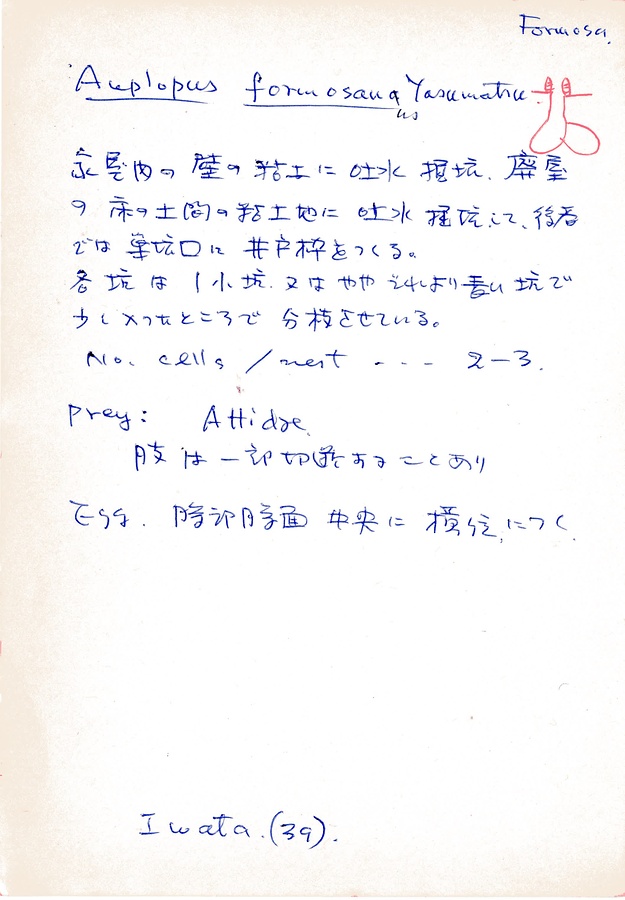 Formosa.
Auplopus formosana Yasumatsu
us
家屋内の壁の粘土に吐水掘坑. 廃屋
の床の土間の粘土地に吐水掘坑して、後者
では巣坑口に井戸枠をつくる。
各坑は1小坑.又はややそれより長い坑で
少し入ったところで分枝させている。
No. cells / nest --- 2-3.
Prey: Attidae.
肢は一部切断することあり
Egg. 腹部腹面中央に横位につく.
Iwata. (39).